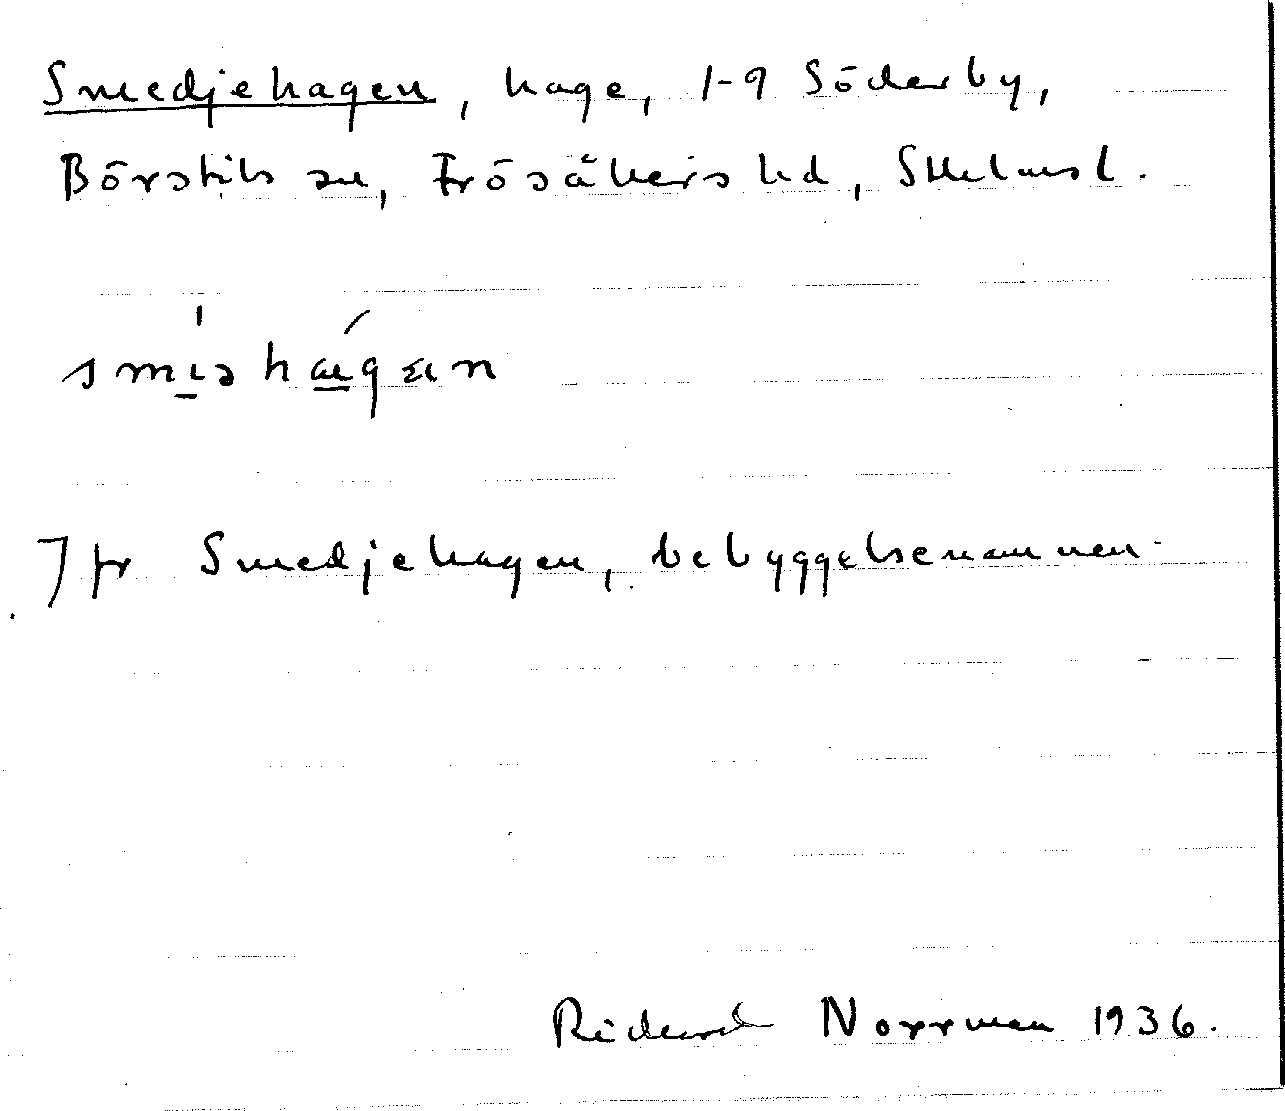 Smedjehagen, hage, 1-9 Söderby,
Börstils sn, Frösåkers hd, Sthlmsl.
Jfr Smedjehagen, bebyggelsenamnen.
Rickard Norrman 1936.